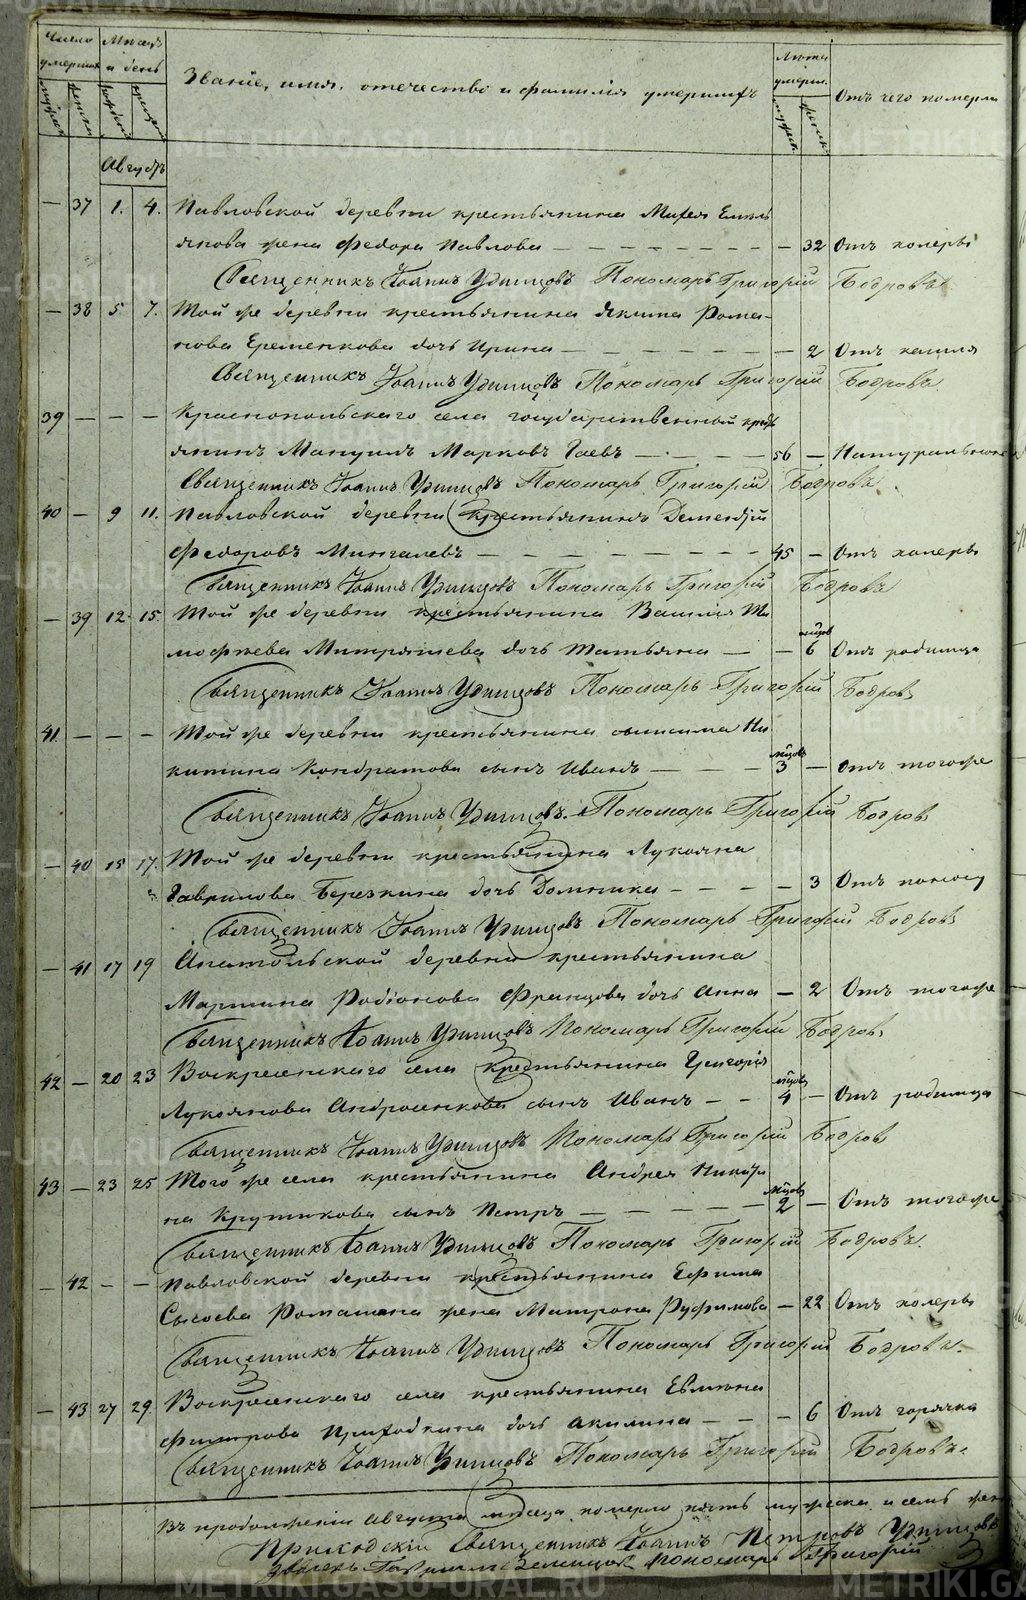 Число умершихъ
Месяцъ и день
Званіе, имя, отечество и фамилія умершихъ
Лѣта умерш.
Отъ чего померли
Августъ
— 37 1. 4. Павловской деревни крестьянина Михея Емель
янова жена Федора Павлова — — — — — — — — 32 Отъ холеры
Священникъ Іоаннъ Удинцовъ Пономарь Григорій Бодровъ
— 38 5 7. Той же деревни крестьянина Акима Рома-
нова Еременкова дочь Ирина — — — — — — — 2 Отъ кашля
Священникъ Іоаннъ Удинцовъ Пономарь Григорій Бодровъ
39 — — — Краснопольскаго села государственный кресть
янинъ Мануилъ Марковъ Гаевъ — — — — 56 — Натурально
Священникъ Іоаннъ Удинцовъ Пономарь Григорій Бодровъ
40 — 9 11. Павловской деревни крестьянинъ Дементій
Федоровъ Мингалевъ — — — — — — — — 45 — Отъ холеры
Священникъ Іоаннъ Удинцовъ Пономарь Григорій Бодровъ
— 39 12. 15. Той же деревни крестьянина Василія Ти
мофѣева Митряшева дочь Татьяна — — — мѣсцов 6 Отъ родимца
Священникъ Іоаннъ Удинцовъ Пономарь Григорій Бодровъ
41 — — — Той же деревни крестьянина Онисима Ни
китина Кондратова сынъ Иванъ — — — — мѣсцовъ 3 — Отъ тогоже
Священникъ Іоаннъ Удинцовъ. Пономарь Григорій Бодров
— 40 15 17. Той же деревни крестьянина Лукояна
Гаврилова Березкина дочь Домника — — — — — 3 Отъ поносу
Священникъ Іоаннъ Удинцовъ Пономарь Григорій Бодровъ
— 41 17 19 Анатольской деревни крестьянина
Мартина Родіонова Францова дочь Анна — 2 Отъ тогоже
Священникъ Іоаннъ Удинцовъ Пономарь Григорій Бодровъ
42 — 20 23 Воскресенскаго села крестьянина Григорія
Лукоянова Андросенкова сынъ Иванъ — — мѣсцовъ 4 — Отъ родимца
Священникъ Іоаннъ Удинцовъ Пономарь Григорій Бодров
43 — 23 25 Того же села крестьянина Андрея Никити
на Крутикова сынъ Петръ — — — — — мѣсцовъ 2 — Отъ тогоже
Священникъ Іоаннъ Удинцовъ Пономарь Григорій Бодровъ.
— 42 — — Павловской деревни крестьянина Ефима
Сысоева Ромашина жена Матрона Руфимова — 22 Отъ холеры
Священникъ Іоаннъ Удинцовъ Пономарь Григорій Бодровъ.
— 43 27 29. Воскресенскаго села крестьянина Евмена
Приходкина дочь Акилина — — — 6 Отъ горячки
Священникъ Іоаннъ Удинцовъ Пономарь Григорій Бодровъ.
Въ продолженіи Августа мѣсяца померло пять мужеска и семь жен
Приходскій Священникъ Іоаннъ Петровъ Удинцовъ
Гаврилъ Пономарь Григорій
METRIKI.GASO-URAL.RU